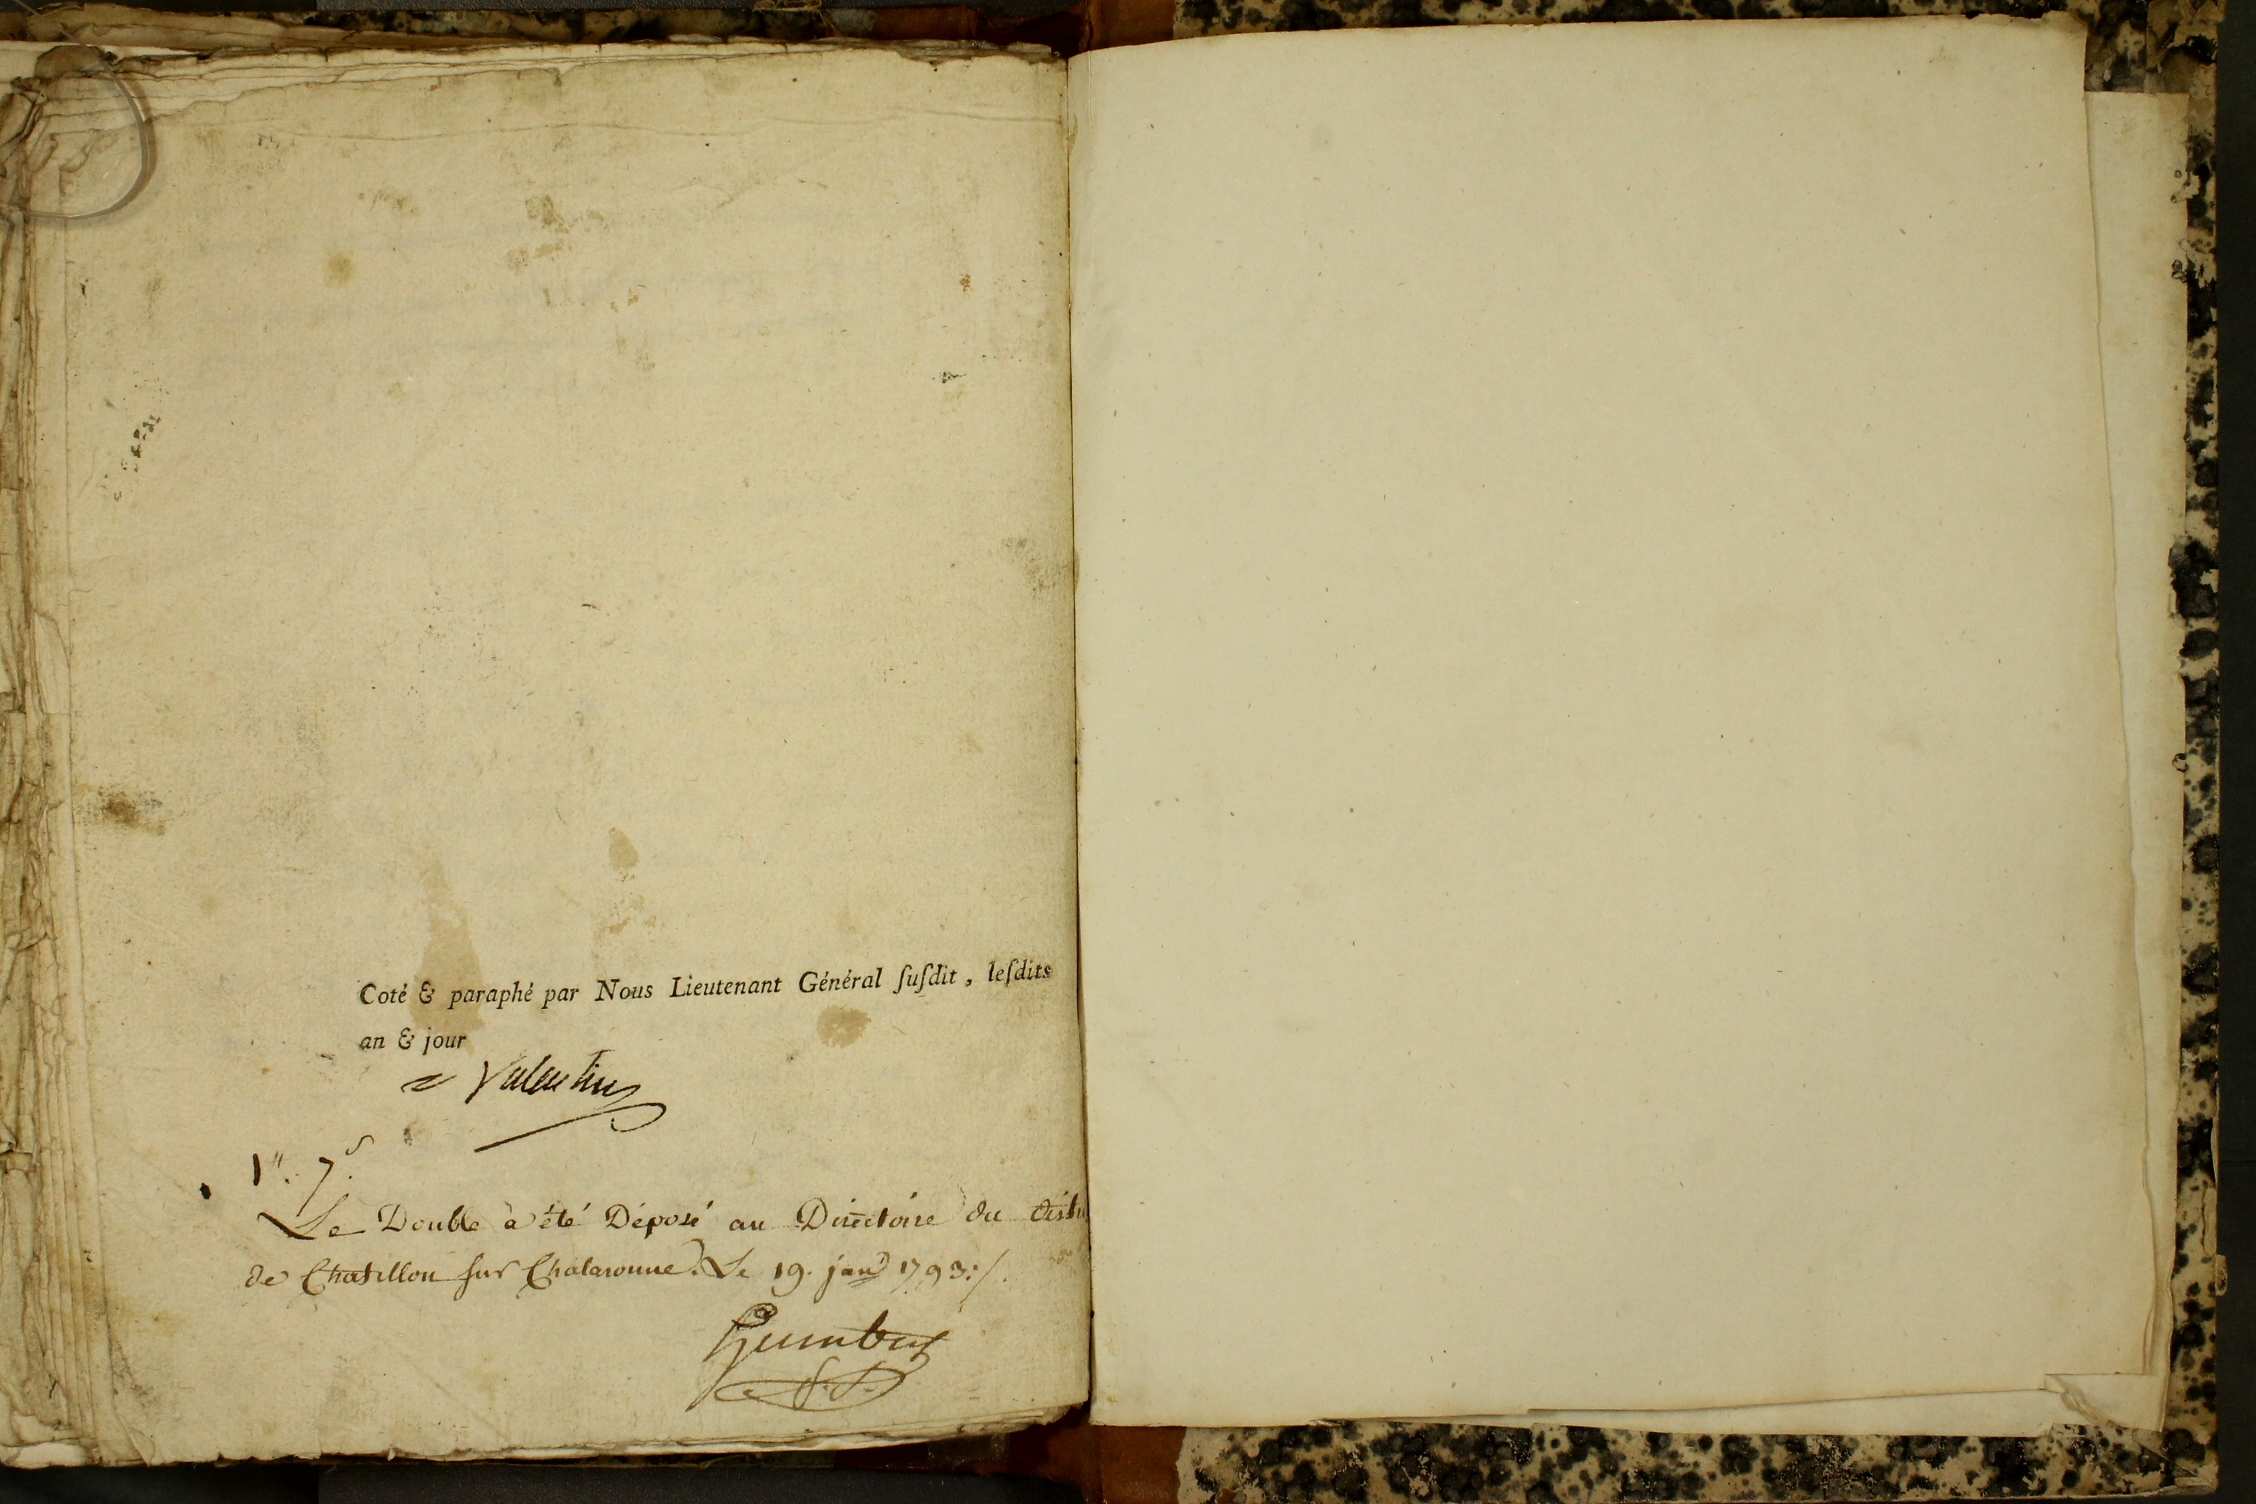 Coté & paraphé par Nous Lieutenant Général ſuſdit, leſdits
an & jour
Valentin
Le Double a été Déposé au Directoire du
de Chatillon sur Chalaronne. Le 19. janr 1793 ./.